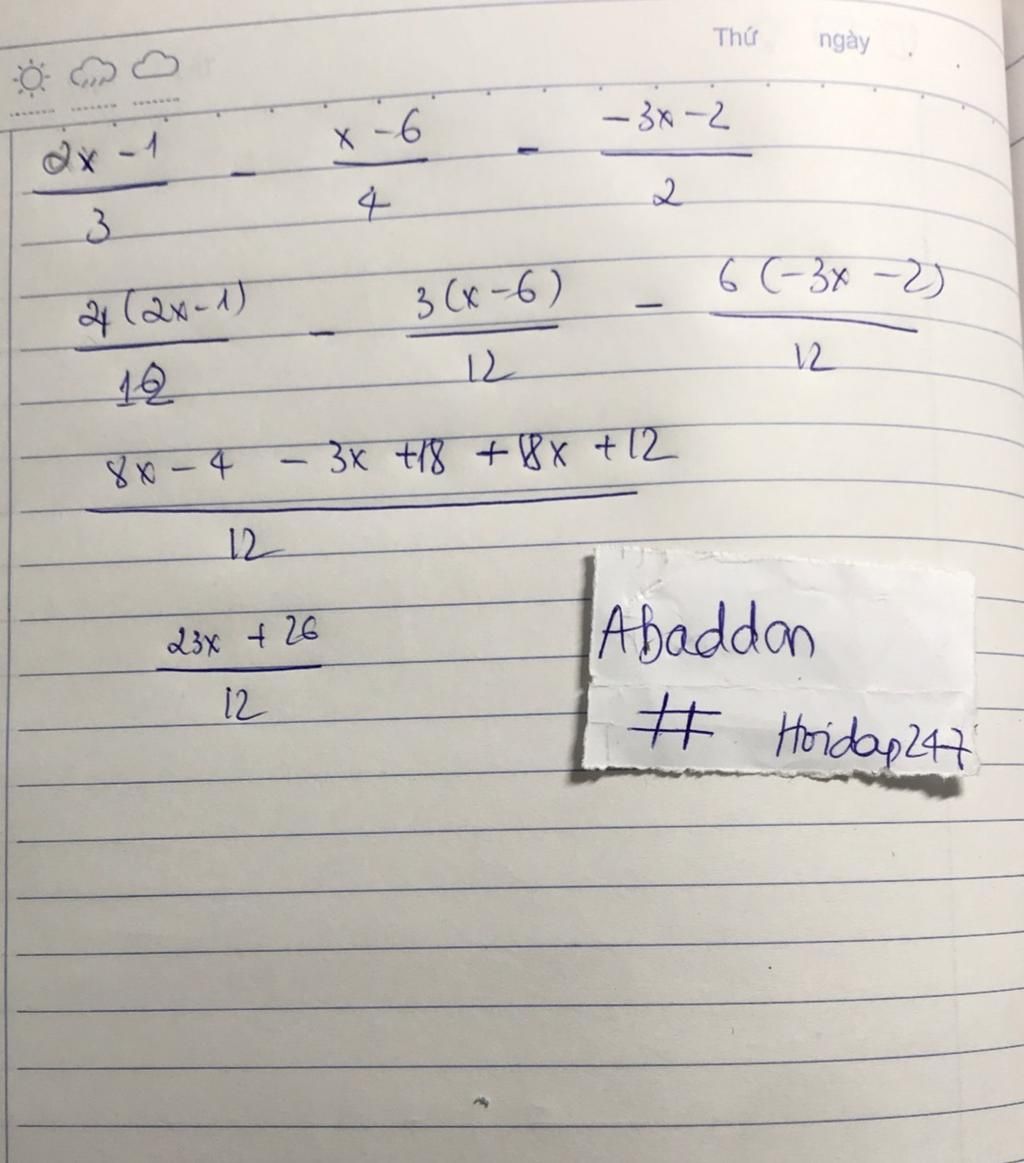 Thứ ngày
2x - 1 / 3 - x - 6 / 4 - -3x - 2 / 2
4(2x - 1) / 12 - 3(x - 6) / 12 - 6(-3x - 2) / 12
8x - 4 - 3x + 18 + 18x + 12 / 12
23x + 26 / 12
Abaddon
# Hoidap247